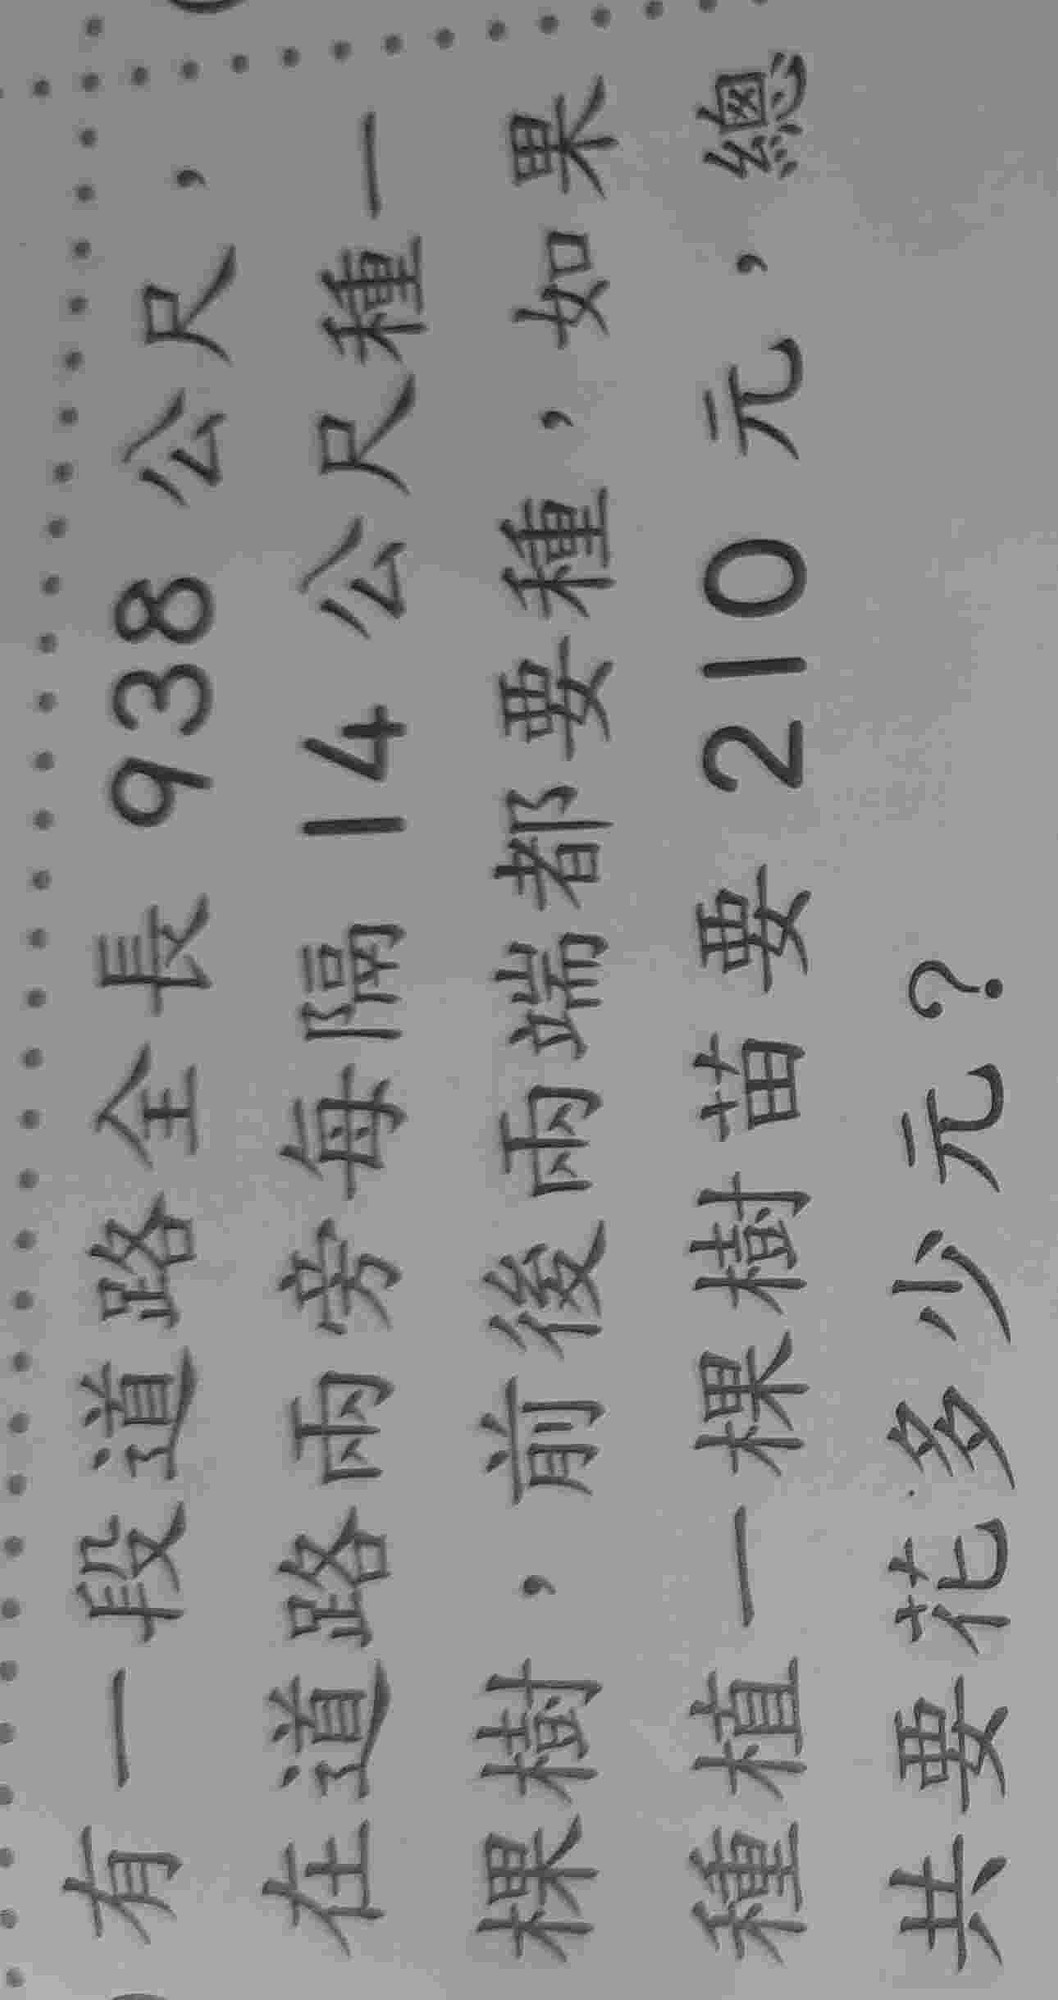 有一段道路全長938公尺，
在道路兩旁每隔14公尺種一
棵樹，前後兩端都要種，如果
種植一棵樹苗要210元，總
共要花多少元？